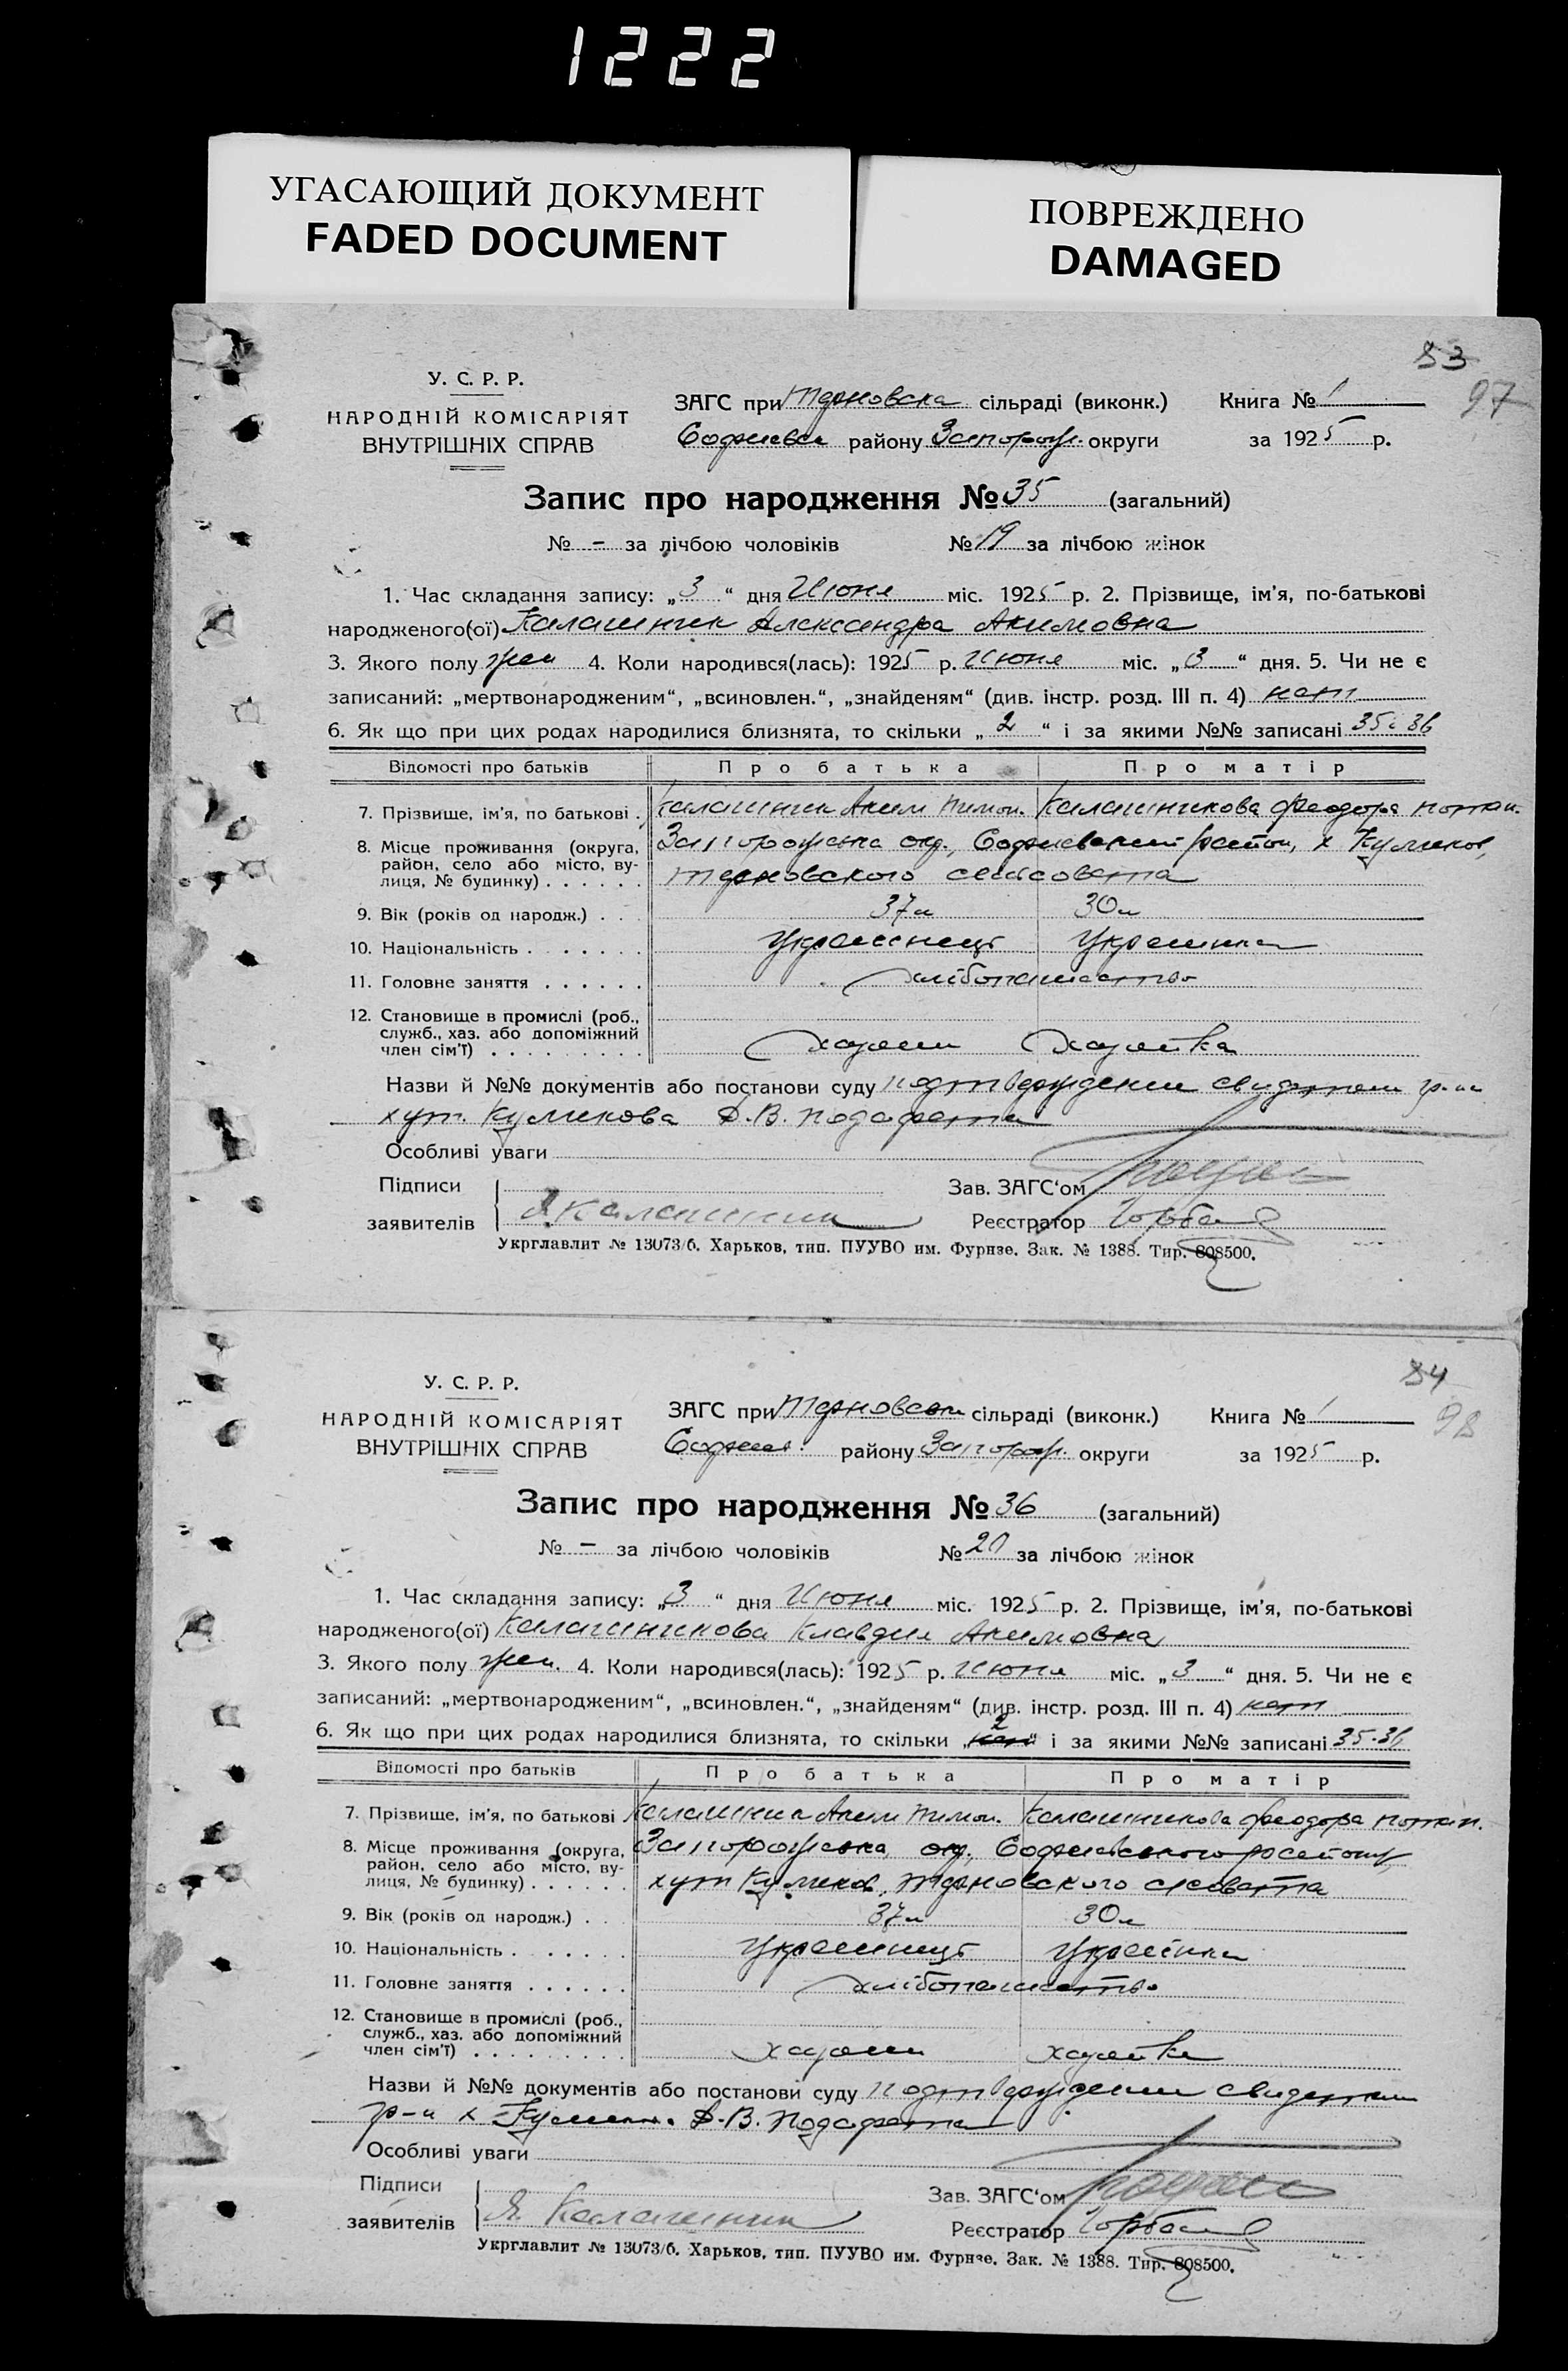 1222
УГАСАЮЩИЙ ДОКУМЕНТ
FADED DOCUMENT
ПОВРЕЖДЕНО
DAMAGED
83
97
У. С. Р. Р.
НАРОДНІЙ КОМІСАРІЯТ
ВНУТРІШНІХ СПРАВ
ЗАГС при Терновска сільраді (виконк.) Книга № 1
Софиевск району Запорож. округи за 1925 р.
Запис про народження № 35 (загальний)
№ - за лічбою чоловіків № 19 за лічбою жінок
1. Час складання запису: „3“ дня Июня міс. 1925 р. 2. Прізвище, ім'я, по-батькові
народженого(ої) Калашник Александра Акимовна
3. Якого полу жен 4. Коли народився(лась): 1925 р. Июня міс. „3“ дня. 5. Чи не є
записаний: „мертвонародженим“, „всиновлен.“, „знайденям“ (див. інстр. розд. III п. 4) нет
6. Як що при цих родах народилися близнята, то скільки „2“ і за якими №№ записані 35 и 36
Відомості про батьків Про батька Про матір
7. Прізвище, ім'я, по батькові . Калашник Аким Тимон. Калашникова Феодора Потап.
8. Місце проживання (округа, район, село або місто, ву-
лиця, № будинку) . . . . . . Запорожська окр., Софиевский район, х Куликов,
Терновского сельсовета
9. Вік (років од народж.) . . . 37 л 30 л
10. Національність . . . . . . . Украинець Украинка
11. Головне заняття . . . . . . хлібопашество
12. Становище в промислі (роб.,
служб., хаз. або допоміжний
член сім'ї) . . . . . . . . . хазяин хазяйка
Назви й №№ документів або постанови суду подтверждении свидетели гр-на
хут. Куликова Д.В.
Особливі уваги
Підписи
заявителів Я Калашник
Зав. ЗАГС‘ом
Реєстратор Горбань
Укрглавлит № 13073/б. Харьков, тип. ПУУВО им. Фурнзе. Зак. № 1388. Тир. 808500.
84
98
У. С. Р. Р.
НАРОДНІЙ КОМІСАРІЯТ
ВНУТРІШНІХ СПРАВ
ЗАГС при Терновском сільраді (виконк.) Книга № 1
Софиев. району Запорож. округи за 1925 р.
Запис про народження № 36 (загальний)
№ - за лічбою чоловіків № 20 за лічбою жінок
1. Час складання запису: „3“ дня Июня міс. 1925 р. 2. Прізвище, ім'я, по-батькові
народженого(ої) Калашникова Клавдия Акимовна
3. Якого полу жен. 4. Коли народився(лась): 1925 р. Июня міс. „3“ дня. 5. Чи не є
записаний: „мертвонародженим“, „всиновлен.“, „знайденям“ (див. інстр. розд. III п. 4) нет
6. Як що при цих родах народилися близнята, то скільки „2“ і за якими №№ записані 35-36
Відомості про батьків Про батька Про матір
7. Прізвище, ім'я, по батькові Калашник Аким Тимон. Калашникова Феодора Потап.
8. Місце проживання (округа, район, село або місто, ву-
лиця, № будинку) . . . . . . Запорожська окр., Софиевського району
хут Куликов, Терновского с/совета
9. Вік (років од народж.) . . . 37 л 30 л
10. Національність . . . . . . . Украинець Украінка
11. Головне заняття . . . . . . хлібопашество
12. Становище в промислі (роб.,
служб., хаз. або допоміжний
член сім'ї) . . . . . . . . . хазяин хазяйка
Назви й №№ документів або постанови суду подтверждении свидетели
гр-на х Куликов. Д.В.
Особливі уваги
Підписи
заявителів Я. Калашник
Зав. ЗАГС‘ом
Реєстратор Горбань
Укрглавлит № 13073/б. Харьков, тип. ПУУВО им. Фурнзе. Зак. № 1388. Тир. 808500.